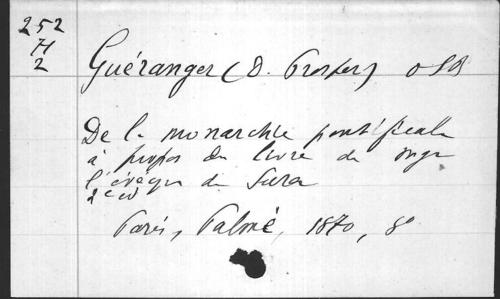 252
H
2
Guéranger (D. Prosper) OSB
De la monarchie pontificale
à propos du livre de mgr
l'évêque de Sura
2e éd
Paris, Palmé, 1870, 8°